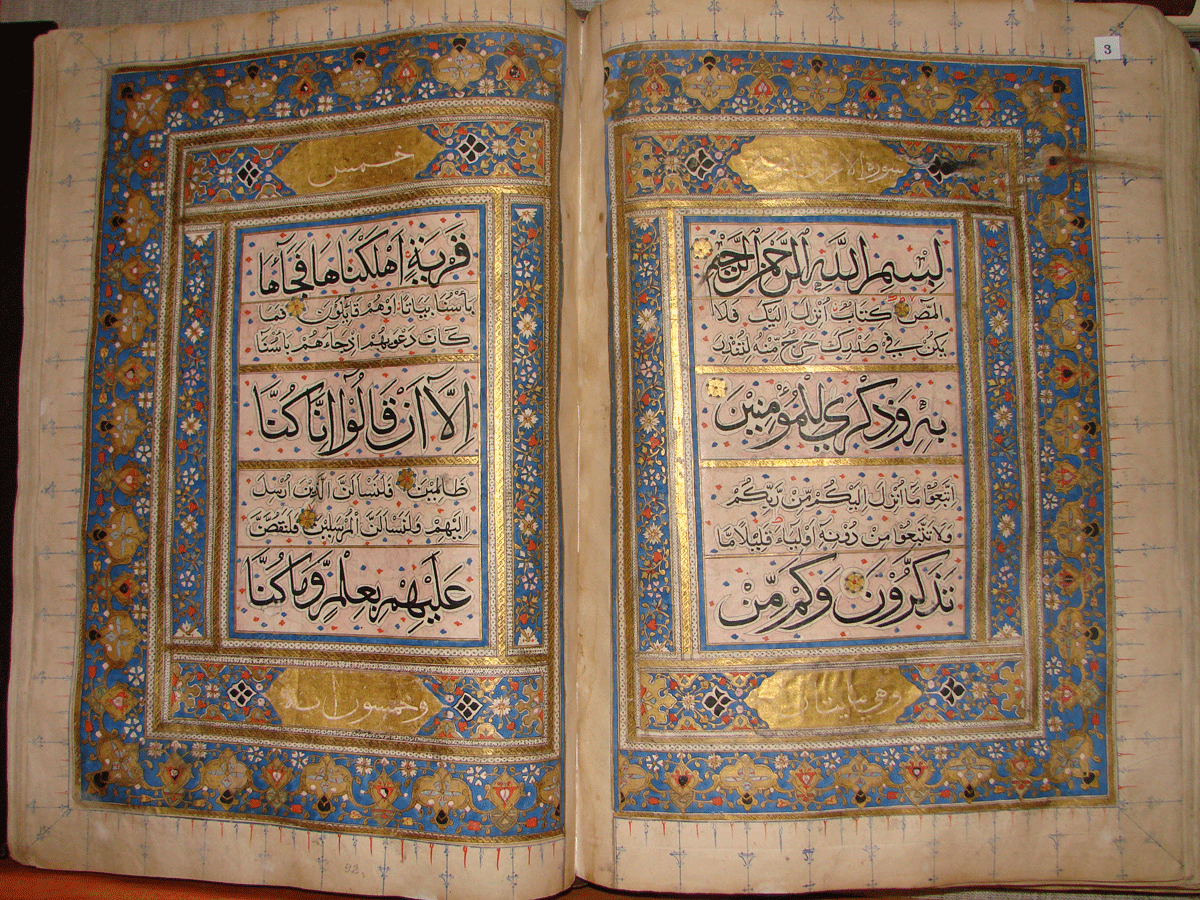 3
سورة الاعراف
بسم الله الرحمن الرحيم
المص كتاب انزل اليك فلا
يكن في صدرك حرج منه لتنذر
به وذكرى للمؤمنين
اتبعوا ما انزل اليكم من ربكم
ولا تتبعوا من دونه اولياء قليلا ما
تذكرون وكم من
وهي مايتان
خمس
قرية اهلكناها فجاءها
باسنا بياتا اوهم قائلون فما
كان دعويهم اذ جاءهم باسنا
الا ان قالوا انا كنا
ظالمين فلنسالن الذين ارسل
اليهم ولنسالن المرسلين فلنقصن
عليهم بعلم وما كنا
وخمسون اية
92